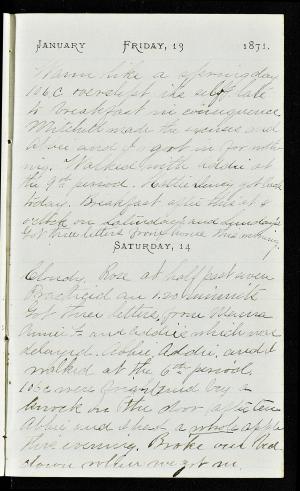 JANUARY FRIDAY, 13 1871.
Warm like a spring day
106 C overslept itself late
to breakfast in consequence
Mitchell made the excuses and
Abbie and I got in for noth-
ing. Walked with Addie at
the 9th period. Hattie got back
today. Breakfast after this at 8
oclock on Saturdays and Sundays
Got three letters from home this morning.
SATURDAY, 14
Cloudy. Rose at half past seven
Practiced an 120 minutes
Got three letters, from Mama
Annie F and Addie which were
delayed. Abbie, Addie, and I
walked at the 6th period.
106 C were frightened by a
knock on the door after ten
Abbie and I had a whole apple
this evening. Broke our bed
down when we got in.